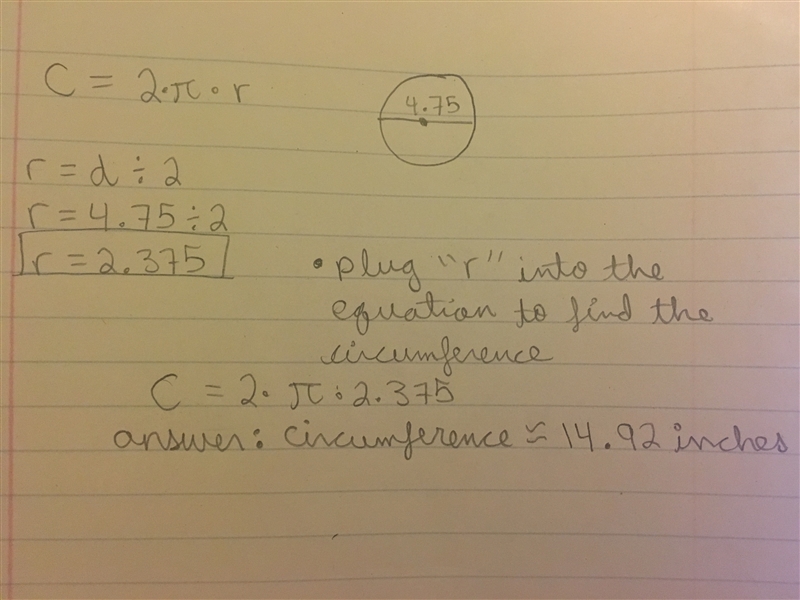 C = 2·π·r
4.75
r = d ÷ 2
r = 4.75 ÷ 2
r = 2.375
• plug "r" into the
equation to find the
circumference
C = 2· π · 2.375
answer: circumference ≈ 14.92 inches